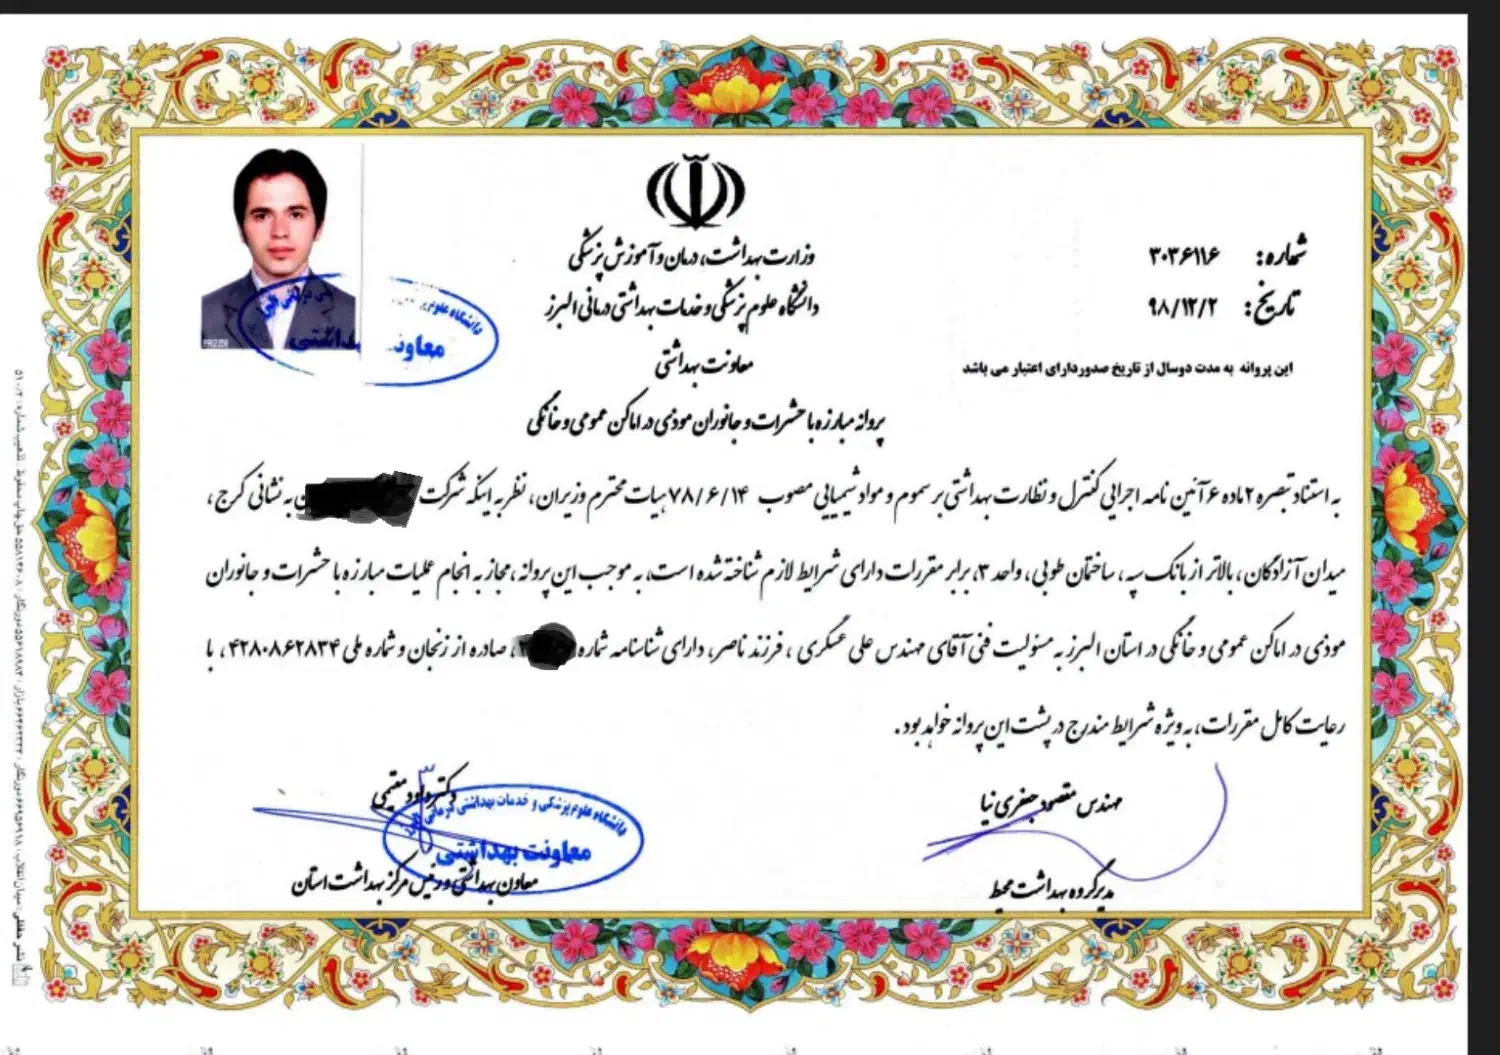 شماره: ۳۰۳۶۱۱۶
تاریخ: ۹۸/۱۲/۲
این پروانه به مدت دوسال از تاریخ صدوردارای اعتبار می باشد
وزارت بهداشت، درمان و آموزش پزشکی
دانشگاه علوم پزشکی و خدمات بهداشتی درمانی البرز
معاونت بهداشتی
پروانه مبارزه با حشرات و جانوران موذی در اماکن عمومی و خانگی
دانشگاه علوم
معاونت بهداشتی
به استناد تبصره ۲ ماده ۶ آئین نامه اجرایی کنترل و نظارت بهداشتی بر سموم و مواد شیمیایی مصوب ۷۸/۶/۱۴ هیات محترم وزیران، نظر به اینکه شرکت ن به نشانی کرج ،
میدان آزادگان ، بالاتر از بانک سپه ، ساختمان طوبی ، واحد ۳، برابر مقررات دارای شرایط لازم شناخته شده است، به موجب این پروانه ، مجاز به انجام عملیات مبارزه با حشرات و جانوران
موذی در اماکن عمومی و خانگی در استان البرز به مسئولیت فنی آقای مهندس علی عسکری ، فرزند ناصر، دارای شناسنامه شماره ، صادره از زنجان و شماره ملی ۴۲۸۰۸۶۲۸۳۴ ، با
رعایت کامل مقررات، به ویژه شرایط مندرج در پشت این پروانه خواهد بود .
مهندس مقصود جعفری نیا
مدیر گروه بهداشت محیط
دکتر داود مقیمی
دانشگاه علوم پزشکی و خدمات بهداشتی درمانی البرز
معاونت بهداشتی
معاون بهداشتی و رئیس مرکز بهداشت استان